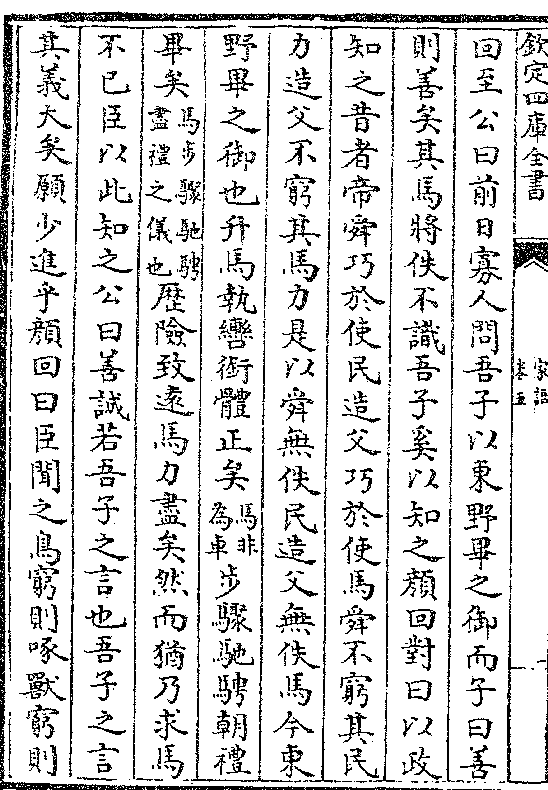 欽定四庫全書 家語 卷五
回至公曰前日寡人問吾子以東野畢之御而子曰善
則善矣其馬將佚不識吾子奚以知之顔回對曰以政
知之昔者帝舜巧於使民造父巧於使馬舜不窮其民
力造父不窮其馬力是以舜無佚民造父無佚馬今東
野畢之御也升馬執轡銜體正矣馬非為車步驟馳騁朝禮
畢矣馬步驟馳騁盡禮之儀也歴險致遠馬力盡矣然而猶乃求馬
不已臣以此知之公曰善誠若吾子之言也吾子之言
其義大矣願少進乎顔回曰臣聞之鳥窮則啄獸窮則